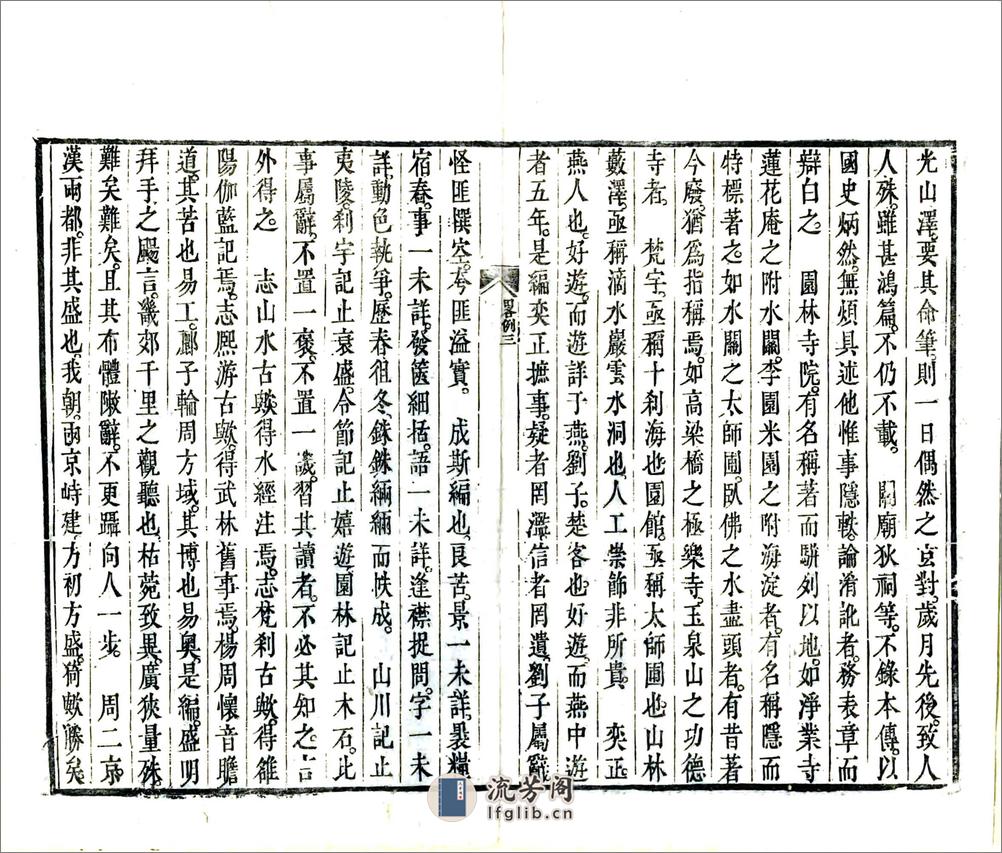 光山澤要其命筆則一日偶然之京對歲月先後致人
人殊雖甚鴻篇不仍不載　關廟狄祠等不錄本傳以
國史炳然無煩具述他惟事隱軼論淆訛者務表章而
辯白之　園林寺院有名稱著而駢列以地如淨業寺
蓮花庵之附水關李園米園之附海淀者有名稱隱而
特標著之如水關之太師圃臥佛之水盡頭者有昔著
今廢猶爲指稱焉如高梁橋之極樂寺玉泉山之功德
寺者　梵宇亟稱十刹海也園館亟稱太師圃也山林
藪澤亟稱滴水巖雲水洞也人工崇飾非所貴　奕正
燕人也好遊而遊詳于燕劉子楚客也好遊而燕中遊
者五年是編奕正摭事疑者罔濫信者罔遺劉子屬辭
畧例三
怪匪撰空夸匪溢實　成斯編也良苦景一未詳裹糧
宿舂事一未詳發篋細括語一未詳逢襟捉問字一未
詳動色執爭歷春徂冬銖銖緉緉而帙成　山川記止
夷陵刹宇記止衰盛令節記止嬉遊園林記止木石比
事屬辭不置一褒不置一譏習其讀者不必其知之言
外得之　志山水古歟得水經注焉志梵刹古歟得雒
陽伽藍記焉志熙游古歟得武林舊事焉楊周懷音膽
道其苦也易工酈子輪周方域其博也易奥是編盛明
拜手之颺言畿郊千里之觀聽也枯菀致異廣狹量殊
難矣難矣且其布體陳辭不更躡向人一步　周二京
漢兩都非其盛也我朝兩京峙建方初方盛猗歟勝矣
流芳阁
lfglib.cn